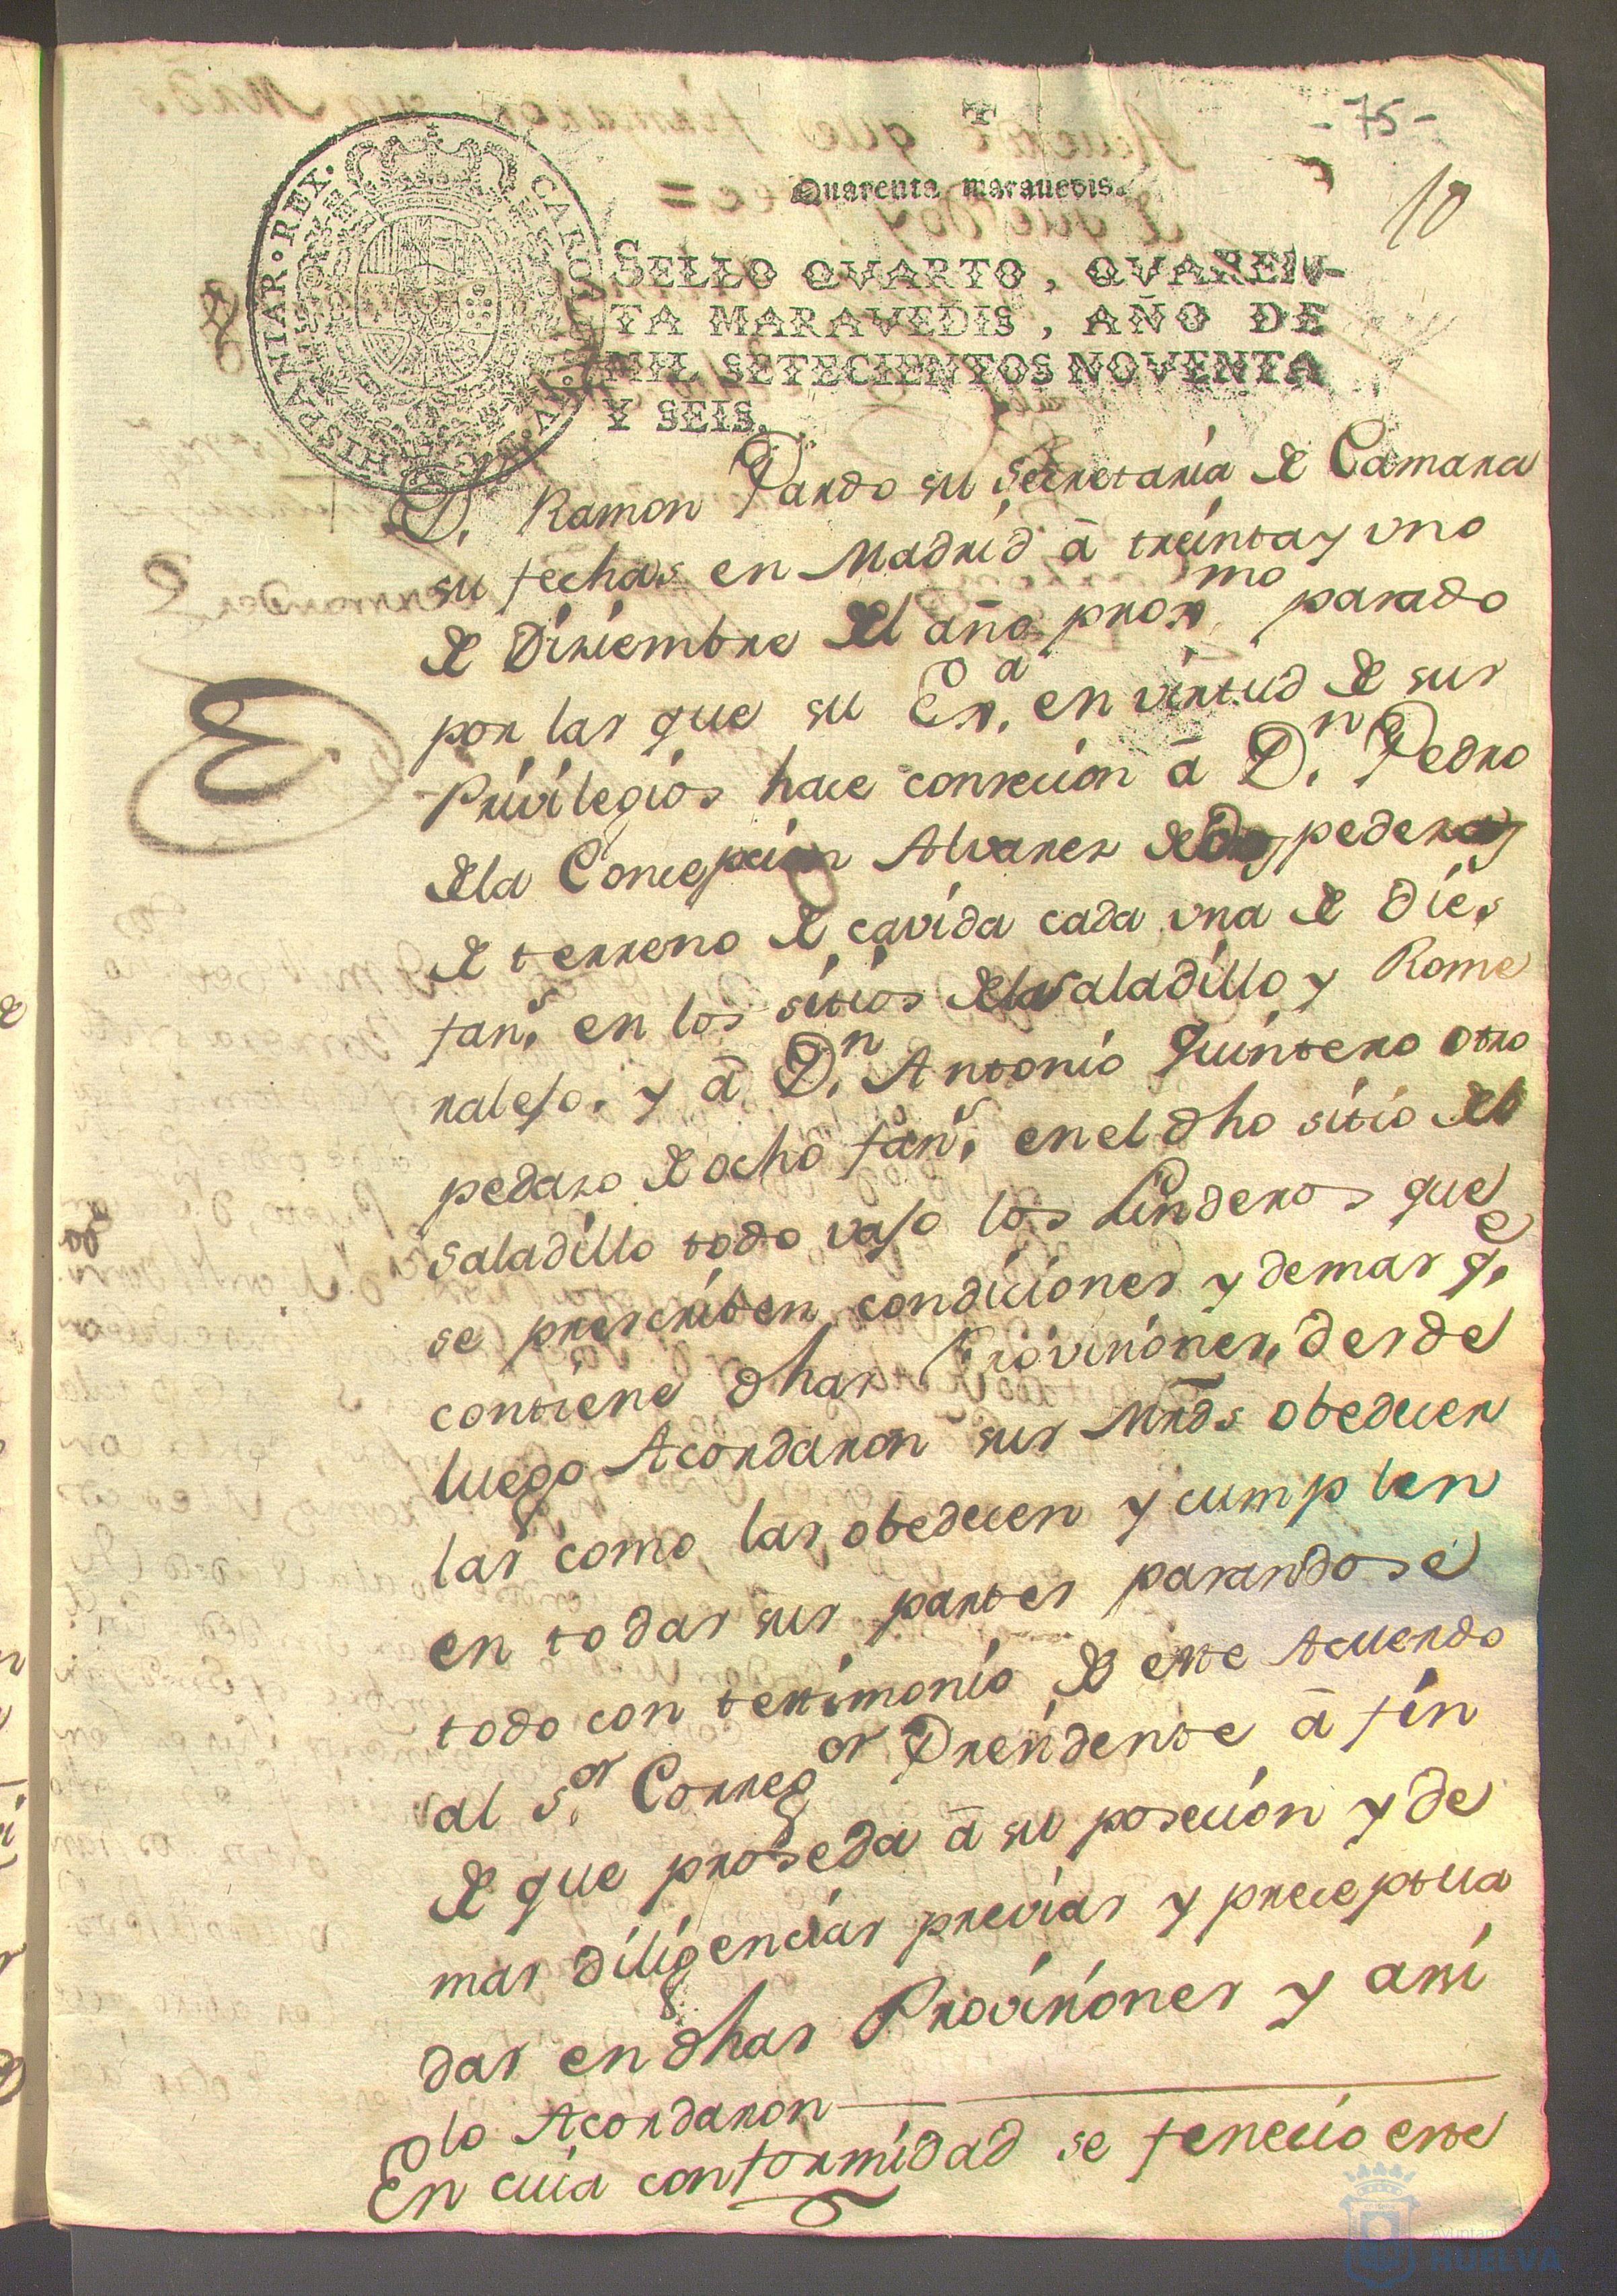 -75-
10
Quarenta maravedis.
CAROLUS IV. D. G. HISPANIAR. REX.
SELLO QVARTO, QVAREN-
TA MARAVEDIS, AÑO DE
MIL SETECIENTOS NOVENTA
Y SEIS.
D. Ramon Pardo su Secretaría de Camara
su fechas en Madrid â treinta y uno
de Diziembre del año proxmo pasado
por las que su Exa. en virtud de sus
Privilegios hace consecion â Dn. Pedro
de la Concepcion Alvarez de pedezos
de terreno de cavida cada una de dies
fans. en los sitios del Saladillo y Rome
ralejo. y â Dn. Antonio Quintero otro
pedazo de ocho fans. en el dho sitio del
Saladillo todo vajo los Linderos que
se prescriben condiciones y demas qe.
contiene dhas Provisiones, desde
luego Acordaron sus Mrds obedecer
las como las obedecen y cumplen
en todas sus partes pasandose
todo con testimonio de este Acuerdo
al Sor. Corregor Presidente â fin
de que proseda â su posecion y de
mas diligencias previas y preceptua
das en dhas Provisiones y asi
lo Acordaron
En cuia conformidad se fenecio este
Ayuntamiento de
HUELVA